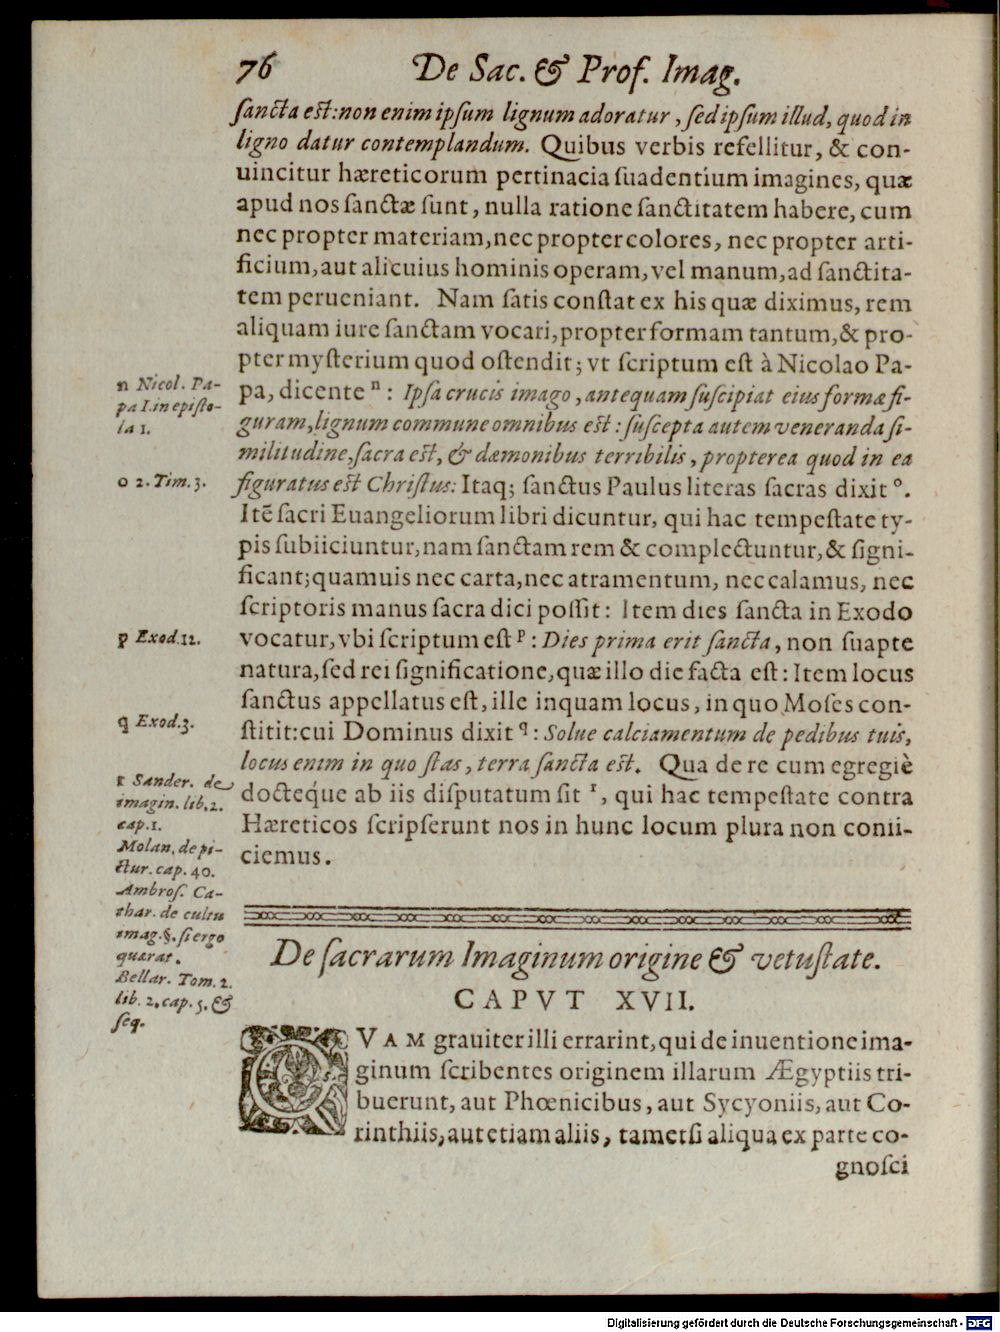 76 De Sac. & Prof. Imag.
sancta est: non enim ipsum lignum adoratur, sed ipsum illud, quod in
ligno datur contemplandum. Quibus verbis refellitur, & con-
uincitur hæreticorum pertinacia suadentium imagines, quæ
apud nos sanctæ sunt, nulla ratione sanctitatem habere, cum
nec propter materiam, nec propter colores, nec propter arti-
ficium, aut alicuius hominis operam, vel manum, ad sanctita-
tem perueniant. Nam satis constat ex his quæ diximus, rem
aliquam iure sanctam vocari, propter formam tantum, & pro-
pter mysterium quod ostendit; vt scriptum est à Nicolao Pa-
pa, dicente n : Ipsa crucis imago, antequam suscipiat eius formæ fi-
guram, lignum commune omnibus est: suscepta autem veneranda si-
militudine, sacra est, & dæmonibus terribilis, propterea quod in ea
figuratus est Christus: Itaq; sanctus Paulus literas sacras dixit o.
Itē sacri Euangeliorum libri dicuntur, qui hac tempestate ty-
pis subiiciuntur, nam sanctam rem & complectuntur, & signi-
ficant; quamuis nec carta, nec atramentum, nec calamus, nec
scriptoris manus sacra dici possit: Item dies sancta in Exodo
vocatur, vbi scriptum est p : Dies prima erit sancta, non suapte
natura, sed rei significatione, quæ illo die facta est: Item locus
sanctus appellatus est, ille inquam locus, in quo Moses con-
stitit: cui Dominus dixit q : Solue calciamentum de pedibus tuis,
locus enim in quo stas, terra sancta est. Qua de re cum egregiè
docteque ab iis disputatum sit r, qui hac tempestate contra
Hæreticos scripserunt nos in hunc locum plura non conii-
ciemus.
n Nicol. Pa-
pa I. in episto-
la 1.
o 2. Tim. 3.
p Exod. 12.
q Exod. 3.
r Sander. de
imagin. lib. 2.
cap. 1.
Molan. de pi-
ctur. cap. 40.
Ambros. Ca-
thar. de cultu
imag. §. si ergo
quærat.
Bellar. Tom. 2.
lib. 2. cap. 5. &
seq.
De sacrarum Imaginum origine & vetustate.
CAPVT XVII.
QVAM grauiter illi errarint, qui de inuentione ima-
ginum scribentes originem illarum Ægyptiis tri-
buerunt, aut Phœnicibus, aut Sycyoniis, aut Co-
rinthiis, aut etiam aliis, tametsi aliqua ex parte co-
gnosci
Digitalisierung gefördert durch die Deutsche Forschungsgemeinschaft - DFG